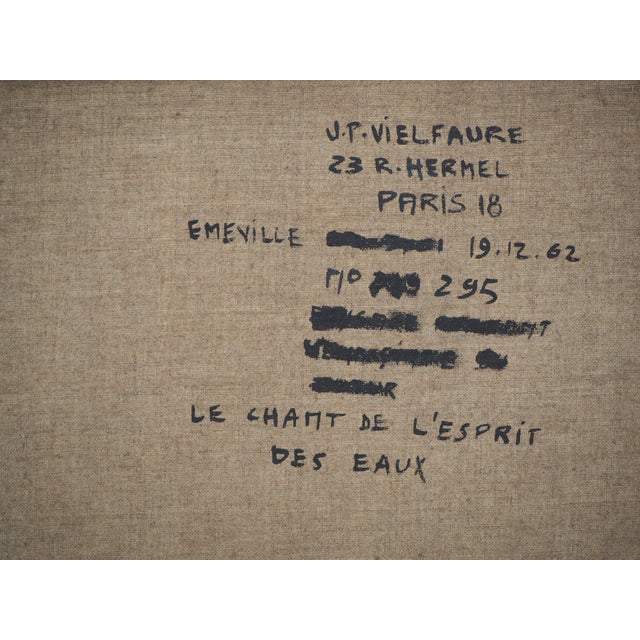 J.P. VIELFAURE
23 R. HERMEL
PARIS 18
EMEVILLE 19.12.62
NO 295
LE CHANT DE L'ESPRIT
DES EAUX